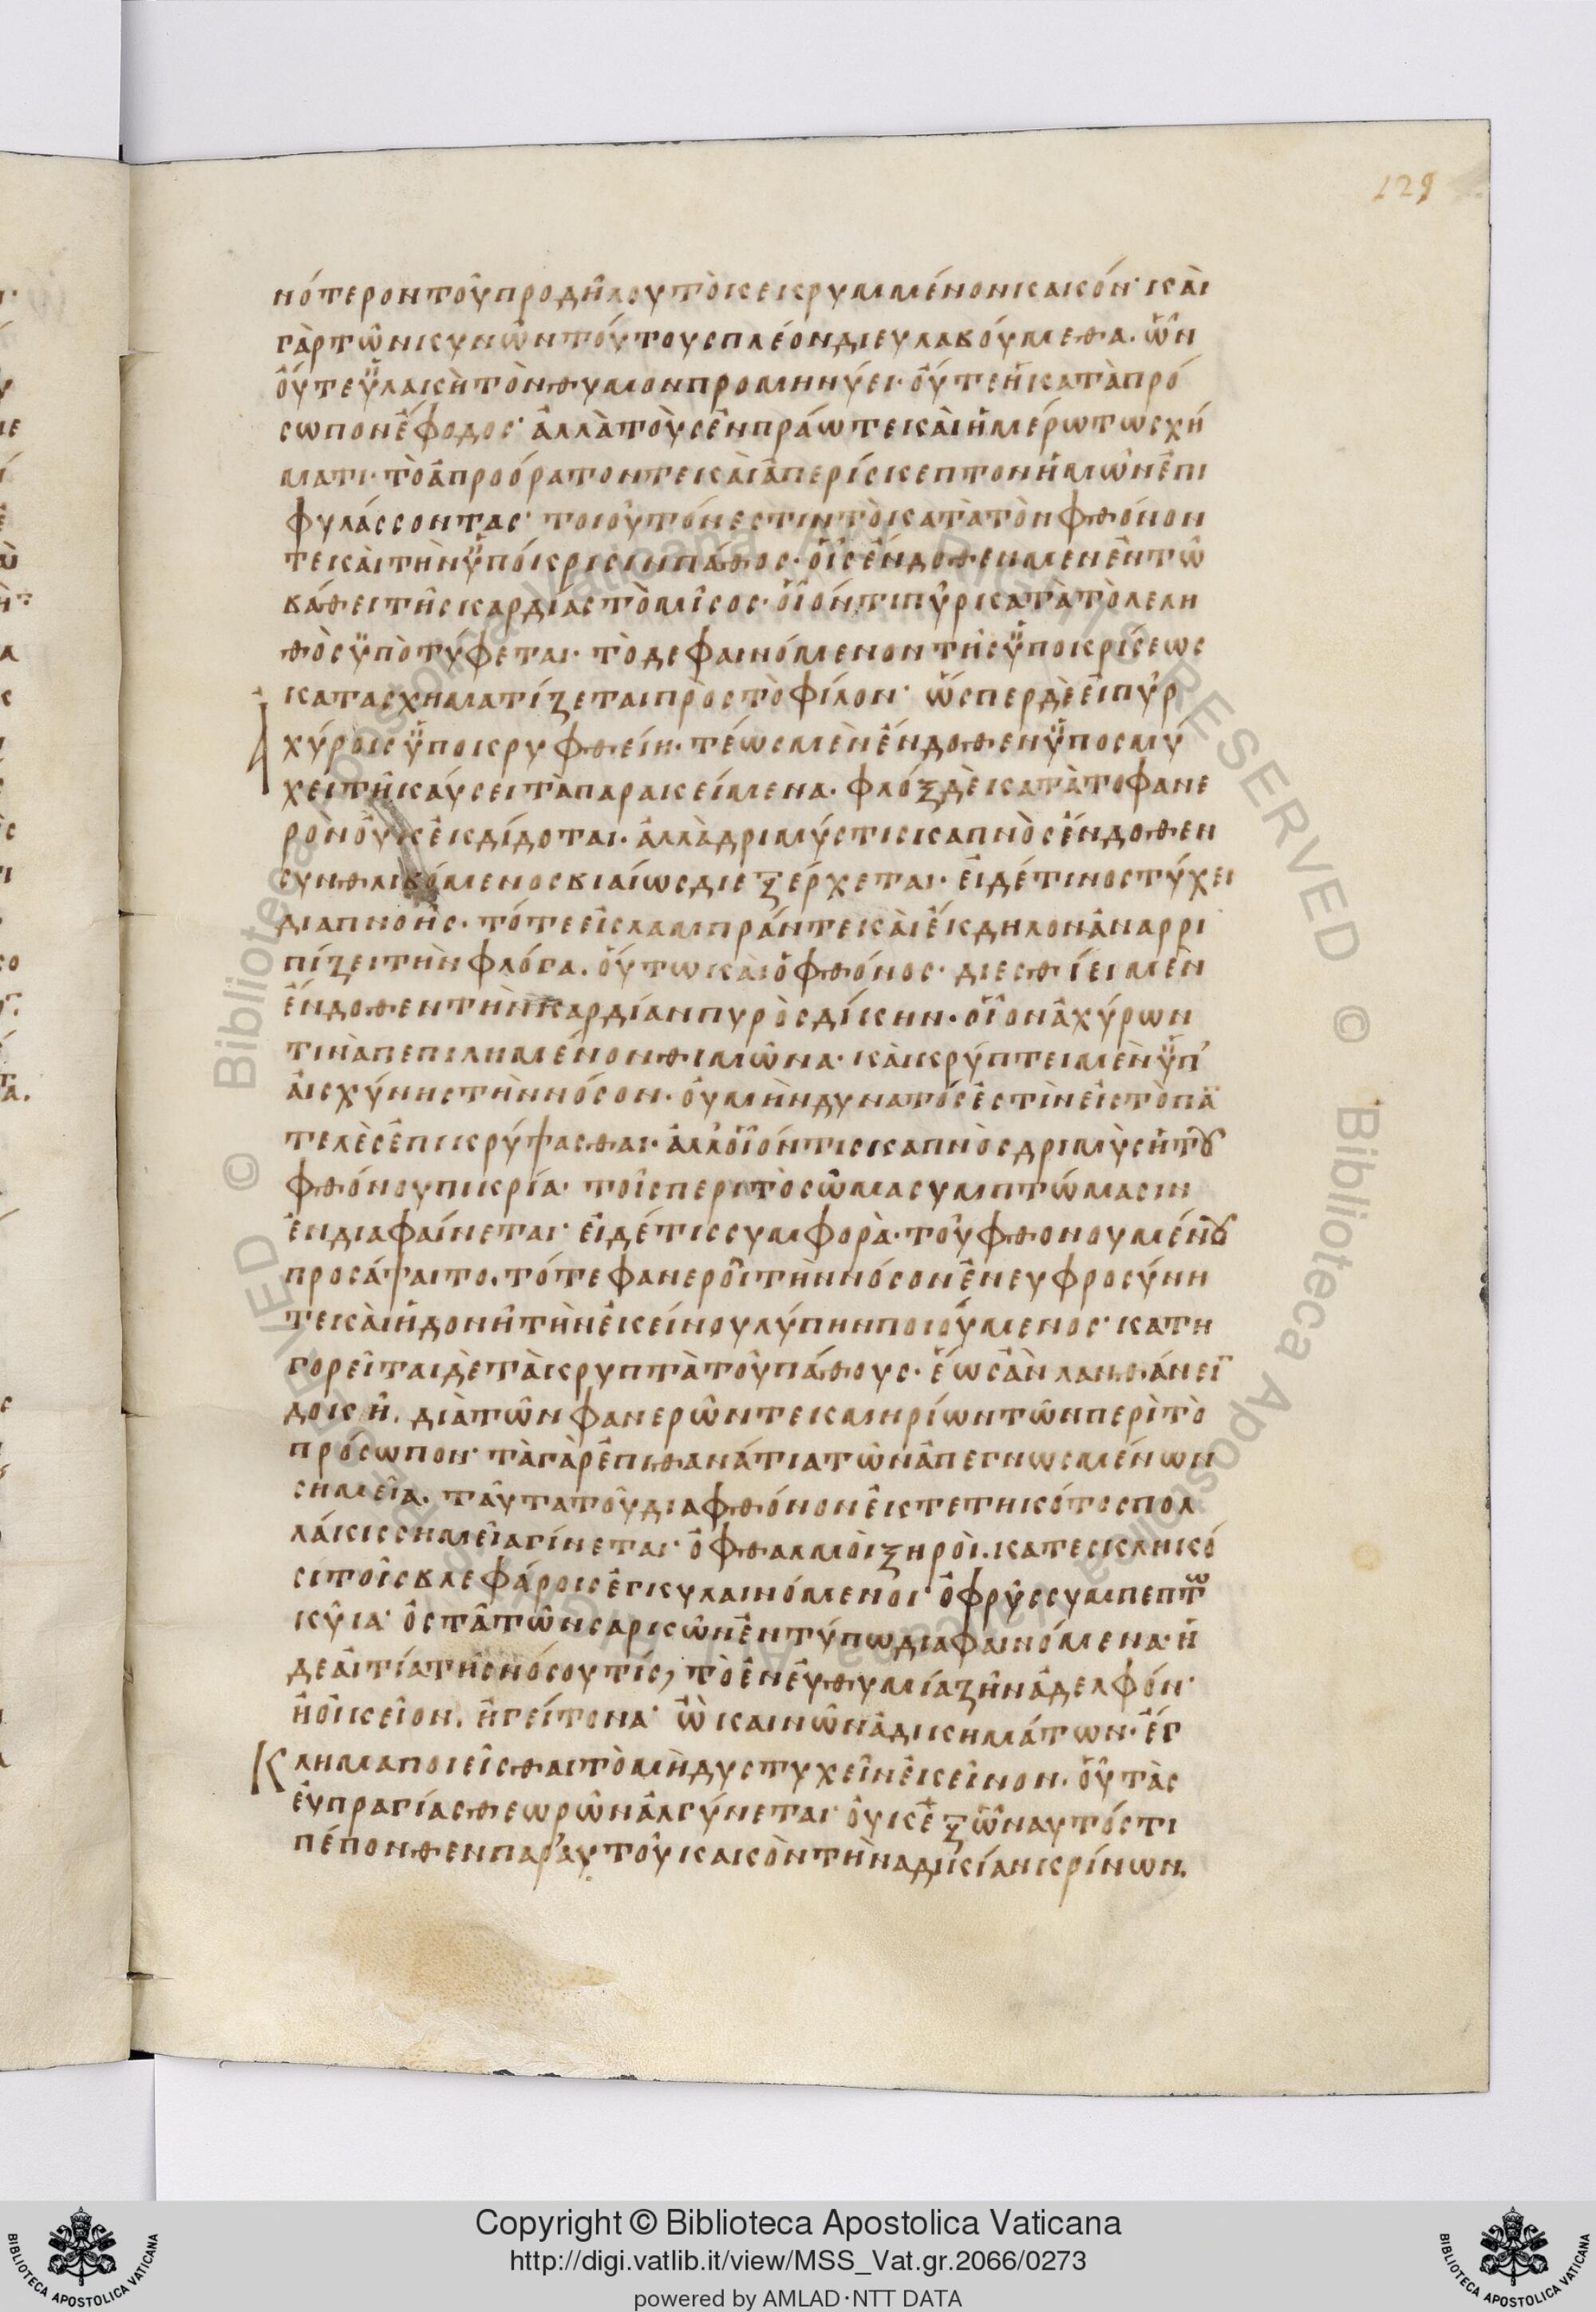 129
νότερον τοῦ προδήλου τὸ κεκρυμμένον κακόν· καὶ
γὰρ τῶν κυνῶν τούτους πλέον διευλαβούμεθα. ὧν
οὔτε ὑλακὴ τὸν θυμον προμηνύει· οὔτε ἡ κατὰ πρό
σωπον ἔφοδος· ἀλλὰ τοὺς ἐν πράω τε καὶ ἡμέρω τω σχή
ματι· τὸ ἀπροόρατον τε καὶ ἀπερίσκεπτον ἡμῶν ἐπι
φυλάσσοντας· τοιοῦτόν εστιν τὸ κατὰ τὸν φθόνον
τε καὶ τὴν ὑπόκρισιν πάθος· οἷς ἔνδοθεν μεν ἐν τῶ
βάθει τῆς καρδίας τὸ μῖσος· οἷόν τι πῦρ κατὰ τὸ λελη
θὸς ὑπὸτύφεται· τὸ δε φαινόμενον τῆς ὑποκρίσεως
κατασχηματίζεται πρὸς τὸ φίλον· ὥσπερ δὲ εἰ πῦρ
ἀχύροις ὑποκρυφθείη· τέως μὲν ἔνδοθεν ὑποσμύ
χει τῆ καύσει τὰ παρακείμενα· φλόξ δὲ κατὰ το φανε
ρὸν οὐκ ἐκδίδοται· ἀλλὰ δριμύς τις καπνὸς ἔνδοθεν
συνθλιβόμενος βιαίως διεξέρχεται· εἰ δέ τινος τύχει
διαπνοῆς· τότε εἰς λαμπράν τε καὶ ἔκδηλον ἀναρρι
πίζει τὴν φλόγα. οὕτω καὶ ὁ φθόνος· διεσθίει μὲν
ἔνδοθεν τὴν καρδίαν πυρὸς δίκην· οἷον ἀχύρων
τινὰ πεπιλημένον θιμῶνα· καὶ κρύπτει μὲν ὑπ'
αἰσχύνης τὴν νόσον· οὐ μὴν δυνατός ἐστὶν εἰς τὸ πα
τελὲς ἐπικρύψασθαι· ἀλλ' οἷόν τις καπνὸς δριμὺς ἡ τοῦ
φθόνου πικρία· τοῖς περι τὸ σῶμα συμπτώμασιν
ἐνδιαφαίνεται· εἰ δέ τις συμφορὰ· τοῦ φθονουμένου
προσάψαιτο. τότε φανεροῖ τὴν νόσον ἐν ευφροσύνη
τε καὶ ἡδονῆ τὴν ἐκείνου λύπην ποιούμενος· κατη
γορεῖται δὲ τὰ κρυπτὰ τοῦ πάθους· ἕως ἂν λανθάνειν
δοκῆ. διὰ τῶν φανερῶν τεκμηρίων τῶν περὶ τὸ
πρόσωπον· τὰ γὰρ ἐπιθανάτια τῶν ἀπεγνωσμένων
σημεῖα. ταῦτα τοῦ δια φθόνον ἐκτετηκότος πολ
λάκις σημεῖα γίνεται· ὀφθαλμοὶ ξηροὶ. κατεσκληκό
σι τοῖς βλεφάροις ἐγκυλαινόμενοι· ὀφρῦς συμπεπτω
κῦια· ὀστᾶ τῶν σαρκῶν ἐντύπω διαφαινόμενα· ἡ
δε ἀιτία τῆς νόσου τίς, τὸ ἐν ἐυθυμία ζῆν ἀδελφόν·
ἢ ὀικεῖον. ἢ γείτονα· ὢ καινῶν ἀδικημάτων· ἔγ
κλημα ποιεῖσθαι τὸ μὴ δυστυχεῖν ἐκεῖνον· οὗ τὰς
ἐυπραγίας θεωρῶν ἀλγύνεται· ὀυκ ἐξ ὧν αυτός τι
πέπονθεν παρ' αυτοῦ κακὸν τὴν αδικίαν κρίνων.
Copyright © Biblioteca Apostolica Vaticana
http://digi.vatlib.it/view/MSS_Vat.gr.2066/0273
powered by AMLAD·NTT DATA